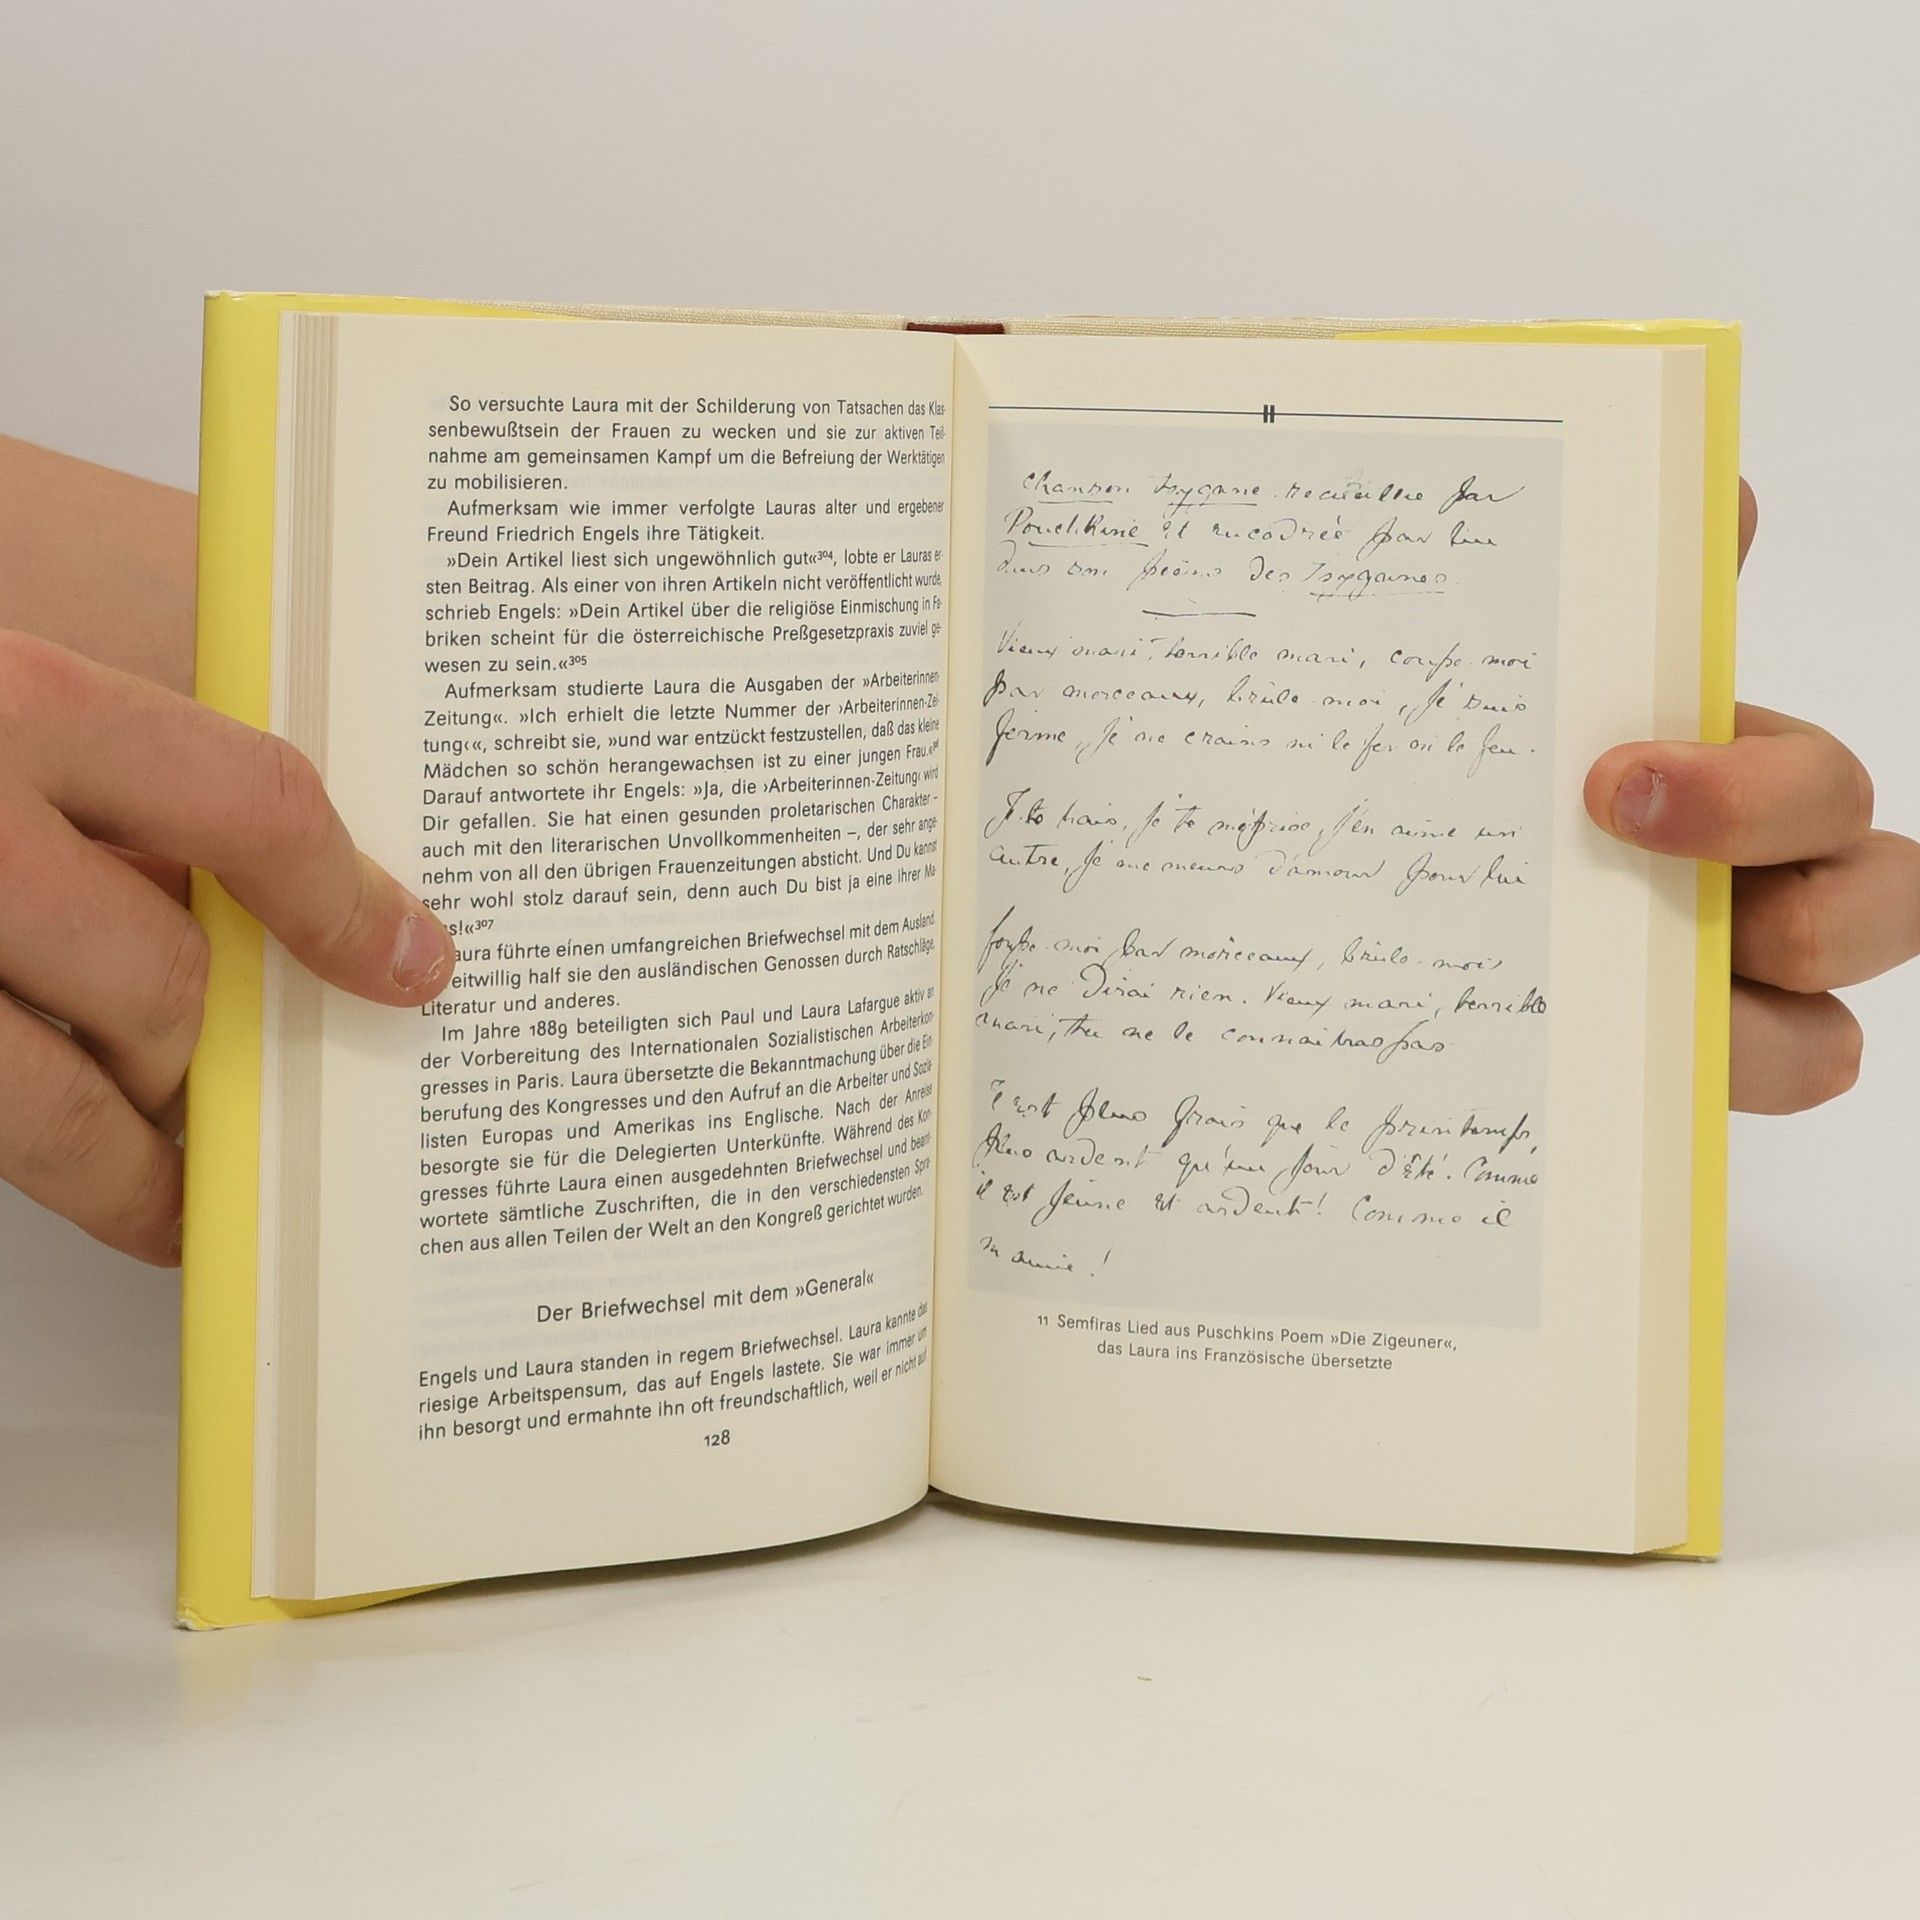 So versuchte Laura mit der Schilderung von Tatsachen das Klas-
senbewußtsein der Frauen zu wecken und sie zur aktiven Teil-
nahme am gemeinsamen Kampf um die Befreiung der Werktätigen
zu mobilisieren.
Aufmerksam wie immer verfolgte Lauras alter und ergebener
Freund Friedrich Engels ihre Tätigkeit.
»Dein Artikel liest sich ungewöhnlich gut«³⁰⁴, lobte er Lauras er-
sten Beitrag. Als einer von ihren Artikeln nicht veröffentlicht wurde,
schrieb Engels: »Dein Artikel über die religiöse Einmischung in Fa-
briken scheint für die österreichische Preßgesetzpraxis zuviel ge-
wesen zu sein.«³⁰⁵
Aufmerksam studierte Laura die Ausgaben der »Arbeiterinnen-
Zeitung«. »Ich erhielt die letzte Nummer der ›Arbeiterinnen-Zei-
tung‹«, schreibt sie, »und war entzückt festzustellen, daß das kleine
Mädchen so schön herangewachsen ist zu einer jungen Frau.«
Darauf antwortete ihr Engels: »Ja, die ›Arbeiterinnen-Zeitung‹ wird
Dir gefallen. Sie hat einen gesunden proletarischen Charakter –
auch mit den literarischen Unvollkommenheiten –, der sehr ange-
nehm von all den übrigen Frauenzeitungen absticht. Und Du kannst
sehr wohl stolz darauf sein, denn auch Du bist ja eine ihrer Ma-
s!«³⁰⁷
aura führte einen umfangreichen Briefwechsel mit dem Ausland.
reitwillig half sie den ausländischen Genossen durch Ratschläge,
Literatur und anderes.
Im Jahre 1889 beteiligten sich Paul und Laura Lafargue aktiv an
der Vorbereitung des Internationalen Sozialistischen Arbeiterkon-
gresses in Paris. Laura übersetzte die Bekanntmachung über die Ein-
berufung des Kongresses und den Aufruf an die Arbeiter und Sozia-
listen Europas und Amerikas ins Englische. Nach der Anreise
besorgte sie für die Delegierten Unterkünfte. Während des Kon-
gresses führte Laura einen ausgedehnten Briefwechsel und beant-
wortete sämtliche Zuschriften, die in den verschiedensten Spra-
chen aus allen Teilen der Welt an den Kongreß gerichtet wurden.
Der Briefwechsel mit dem »General«
Engels und Laura standen in regem Briefwechsel. Laura kannte das
riesige Arbeitspensum, das auf Engels lastete. Sie war immer um
ihn besorgt und ermahnte ihn oft freundschaftlich, weil er nicht auf
128
Chanson tsygane recueillie par
Pouchkine et encadrée par lui
dans son poème des Tsyganes.
Vieux mari, terrible mari, coupe-moi
par morceaux, brûle-moi, je suis
ferme, je ne crains ni le fer ni le feu.
Je te hais, je te méprise, j'en aime un
autre, je me meurs d'amour pour lui
Coupe-moi par morceaux, brûle-moi
je ne dirai rien. Vieux mari, terrible
mari, tu ne le connaîtras pas
Il est plus frais que le printemps,
plus ardent qu'un jour d'été. Comme
il est jeune et ardent! Comme il
m'aime!
11 Semfiras Lied aus Puschkins Poem »Die Zigeuner«,
das Laura ins Französische übersetzte